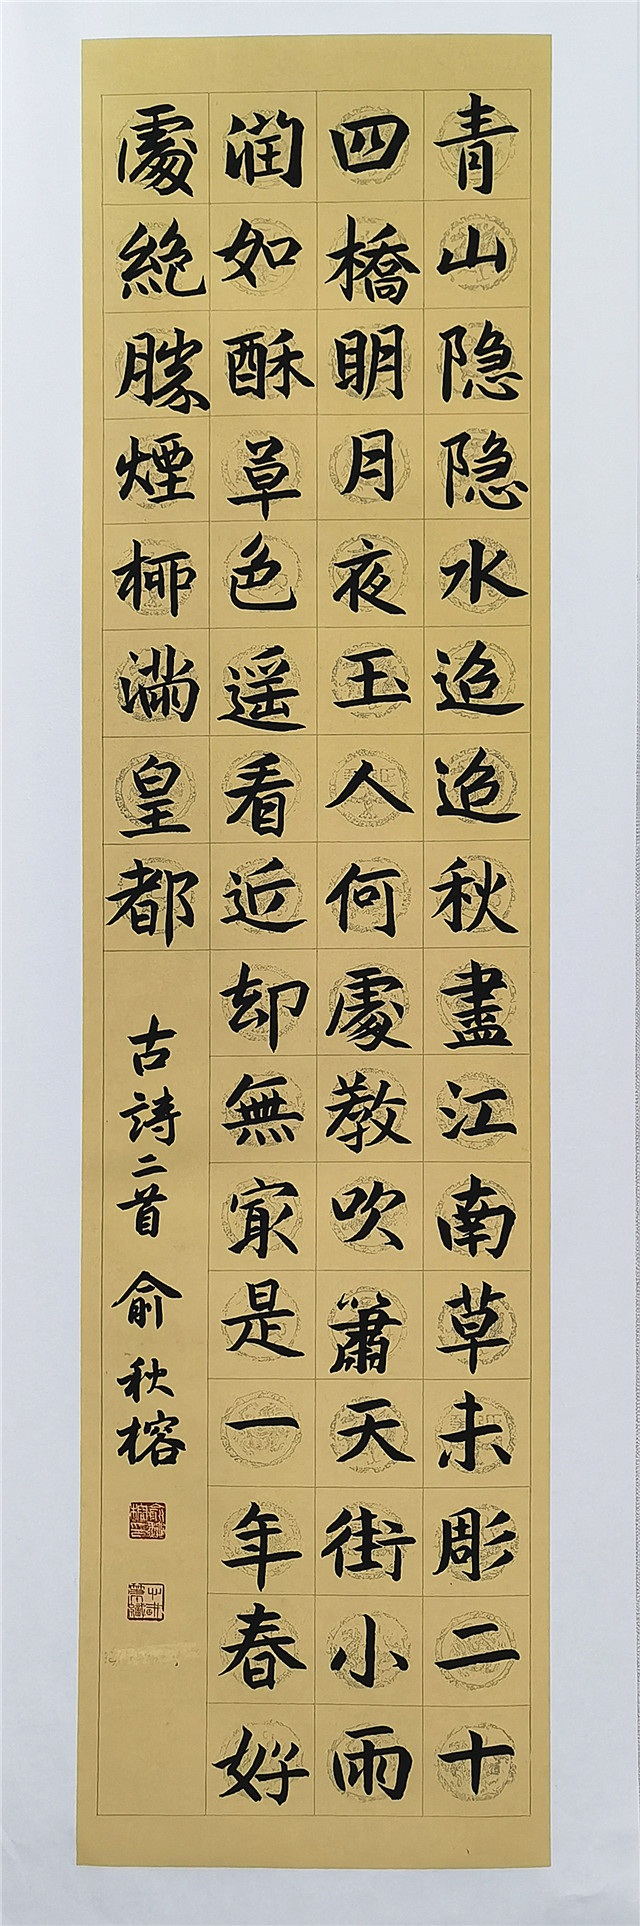 青山隐隐水迢迢秋盡江南草未彫二十
四橋明月夜玉人何處教吹簫天街小雨
潤如酥草色遥看近却無最是一年春好
處絶勝煙柳滿皇都
古詩二首 俞秋榕